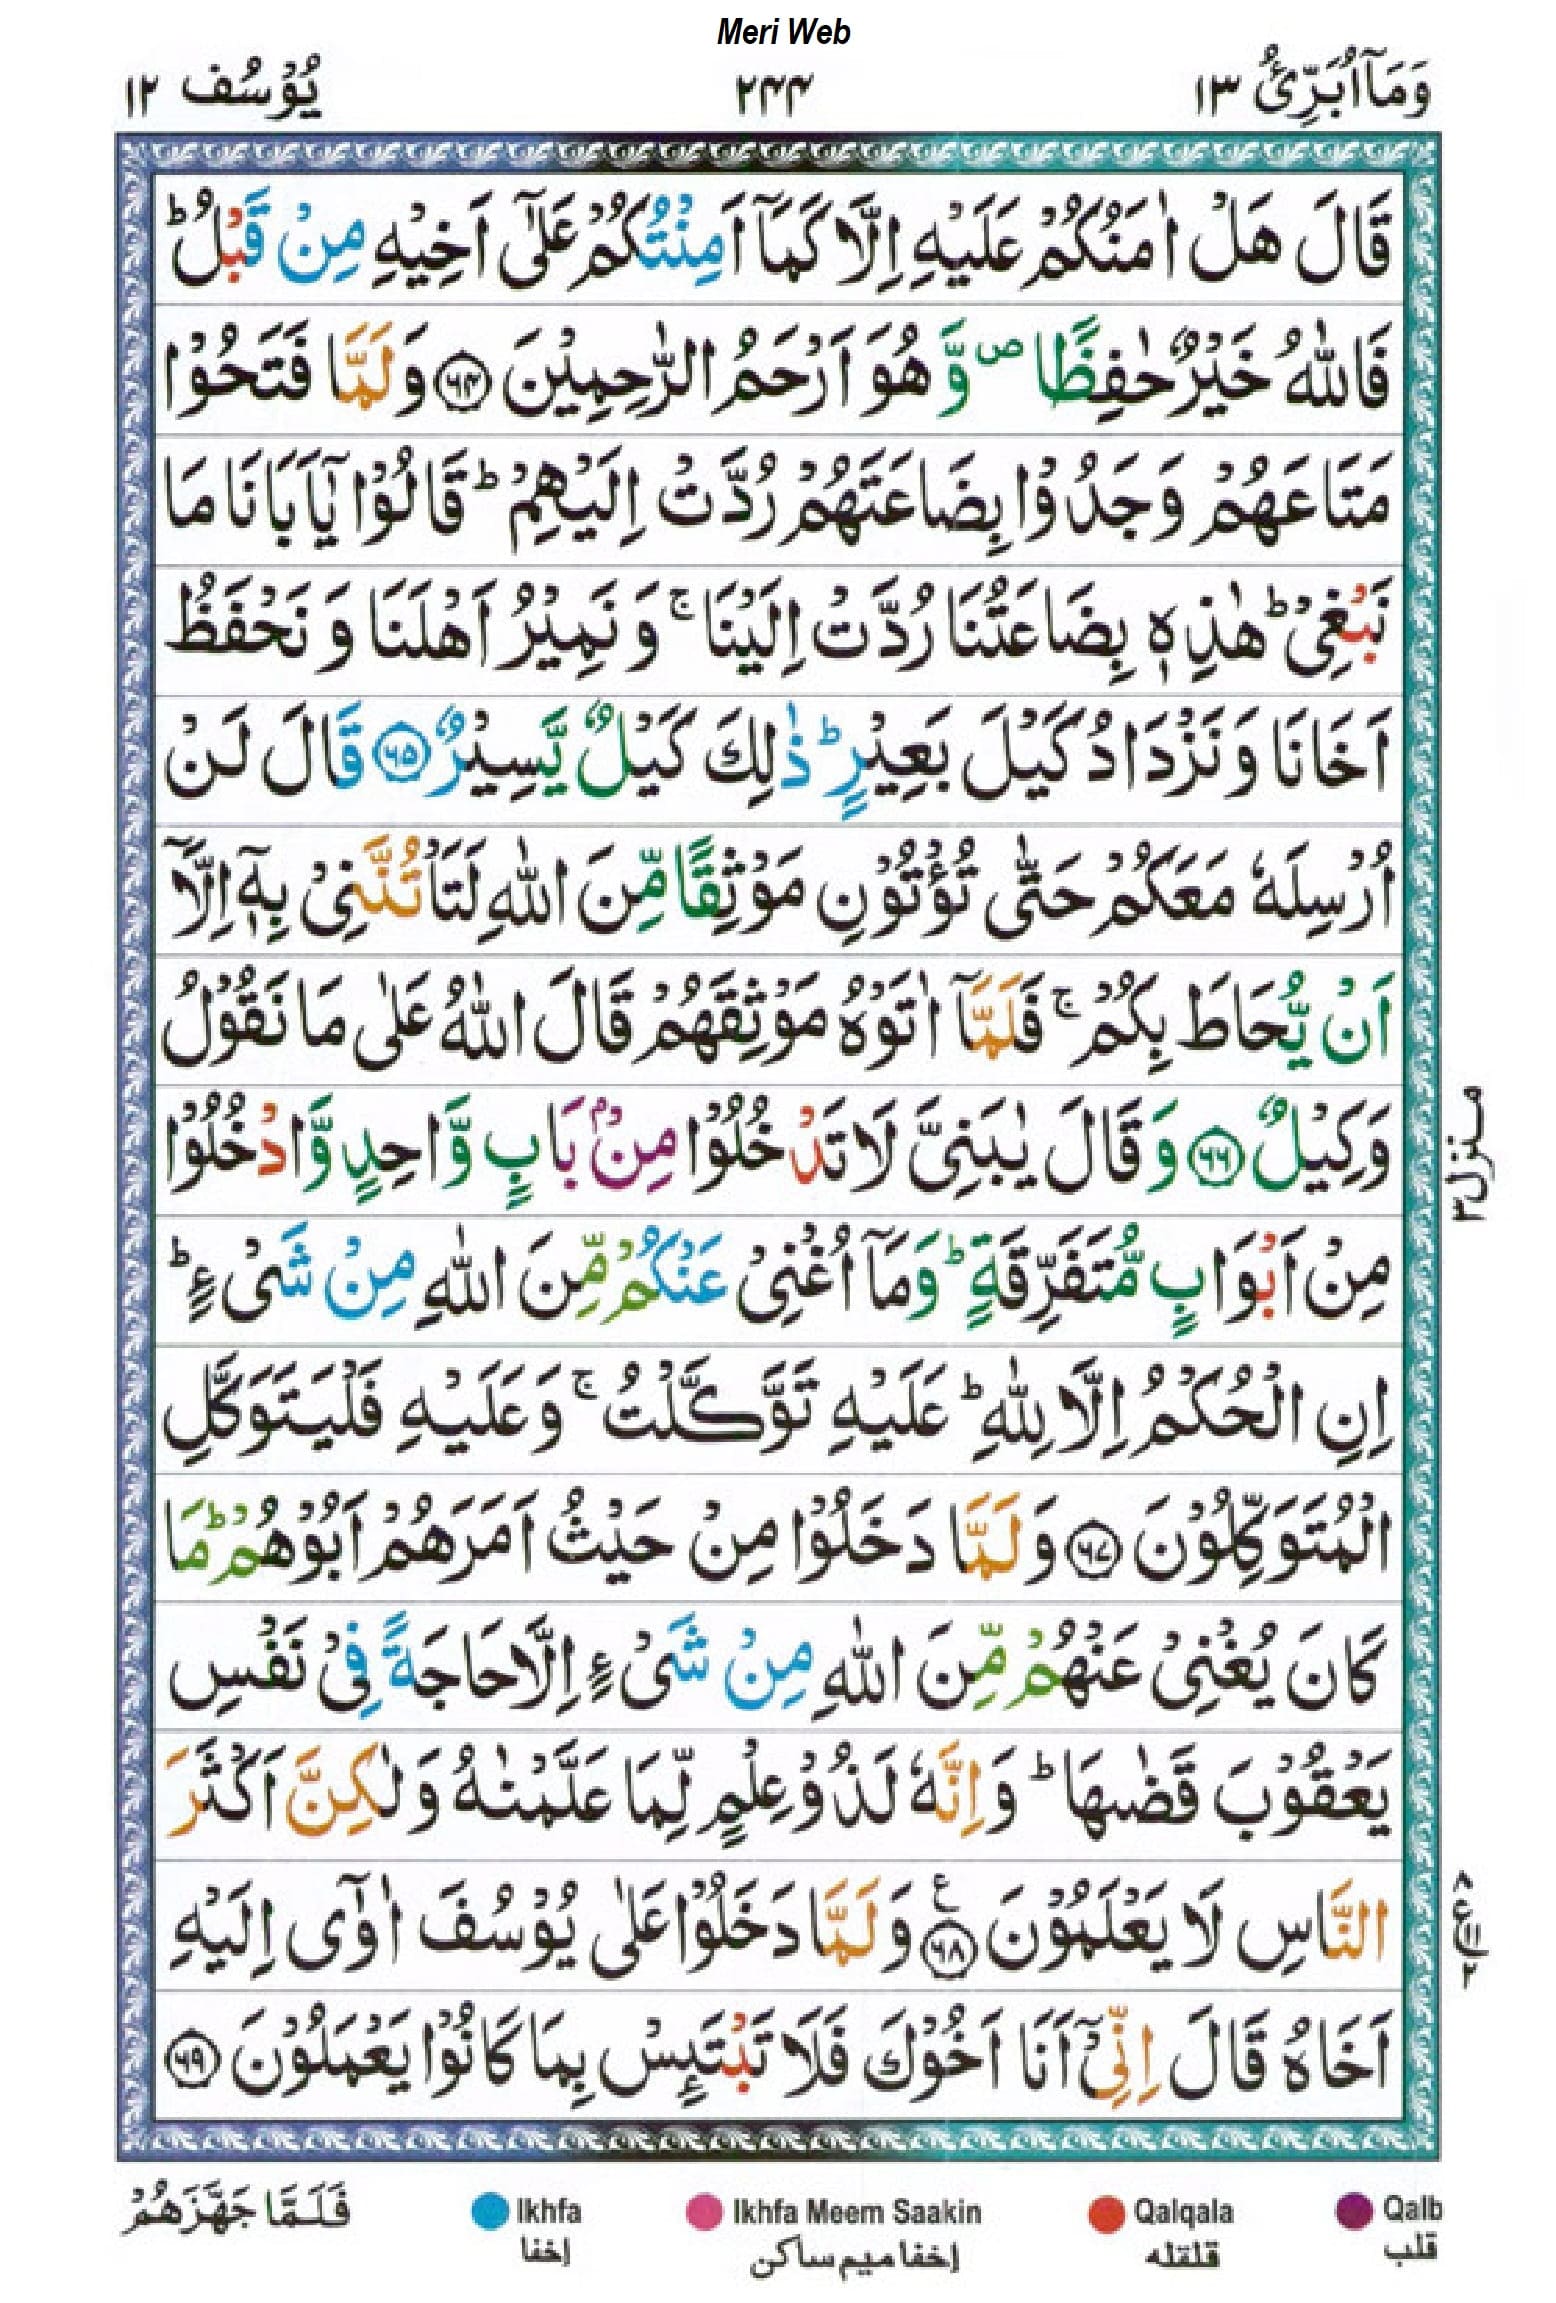 Meri Web
وَمَاۤ اُبَرِّئُ ١٣
٢۴۴
يُوْسُف ١٢
قَالَ هَلْ اٰمَنُكُمْ عَلَيْهِ اِلَّا كَمَاۤ اَمِنْتُكُمْ عَلٰۤى اَخِيْهِ مِنْ قَبْلُ ؕ
فَاللّٰهُ خَيْرٌ حٰفِظًا ۪ وَّ هُوَ اَرْحَمُ الرّٰحِمِيْنَ ﴿۶۴﴾ وَ لَمَّا فَتَحُوْا
مَتَاعَهُمْ وَجَدُوْا بِضَاعَتَهُمْ رُدَّتْ اِلَيْهِمْ ؕ قَالُوْا يٰۤاَبَانَا مَا
نَبْغِىْ ؕ هٰذِهٖ بِضَاعَتُنَا رُدَّتْ اِلَيْنَا ۚ وَ نَمِيْرُ اَهْلَنَا وَ نَحْفَظُ
اَخَانَا وَ نَزْدَادُ كَيْلَ بَعِيْرٍ ؕ ذٰلِكَ كَيْلٌ يَّسِيْرٌ ﴿۶۵﴾ قَالَ لَنْ
اُرْسِلَهٗ مَعَكُمْ حَتّٰى تُؤْتُوْنِ مَوْثِقًا مِّنَ اللّٰهِ لَتَاْتُنَّنِىْ بِهٖۤ اِلَّاۤ
اَنْ يُّحَاطَ بِكُمْ ۚ فَلَمَّاۤ اٰتَوْهُ مَوْثِقَهُمْ قَالَ اللّٰهُ عَلٰى مَا نَقُوْلُ
وَكِيْلٌ ﴿۶۶﴾ وَ قَالَ يٰبَنِىَّ لَا تَدْخُلُوْا مِنْۢ بَابٍ وَّاحِدٍ وَّادْخُلُوْا
مِنْ اَبْوَابٍ مُّتَفَرِّقَةٍ ؕ وَمَاۤ اُغْنِىْ عَنْكُمْ مِّنَ اللّٰهِ مِنْ شَىْءٍ ؕ
اِنِ الْحُكْمُ اِلَّا لِلّٰهِ ؕ عَلَيْهِ تَوَّكَّلْتُ ۚ وَ عَلَيْهِ فَلْيَتَوَكَّلِ
الْمُتَوَكِّلُوْنَ ﴿۶۷﴾ وَ لَمَّا دَخَلُوْا مِنْ حَيْثُ اَمَرَهُمْ اَبُوْهُمْ ؕ مَا
كَانَ يُغْنِىْ عَنْهُمْ مِّنَ اللّٰهِ مِنْ شَىْءٍ اِلَّا حَاجَةً فِىْ نَفْسِ
يَعْقُوْبَ قَضٰىهَا ؕ وَاِنَّهٗ لَذُوْ عِلْمٍ لِّمَا عَلَّمْنٰهُ وَلٰكِنَّ اَكْثَرَ
النَّاسِ لَا يَعْلَمُوْنَ ﴿۶۸﴾ ع وَ لَمَّا دَخَلُوْا عَلٰى يُوْسُفَ اٰوٰۤى اِلَيْهِ
اَخَاهُ قَالَ اِنِّىْۤ اَنَا اَخُوْكَ فَلَا تَبْتَئِسْ بِمَا كَانُوْا يَعْمَلُوْنَ ﴿۶۹﴾
منزل ٣
٨
١١ ع
٢
فَلَمَّا جَهَّزَهُمْ
Ikhfa
إخفا
Ikhfa Meem Saakin
إخفا ميم ساكن
Qalqala
قلقله
Qalb
قلب